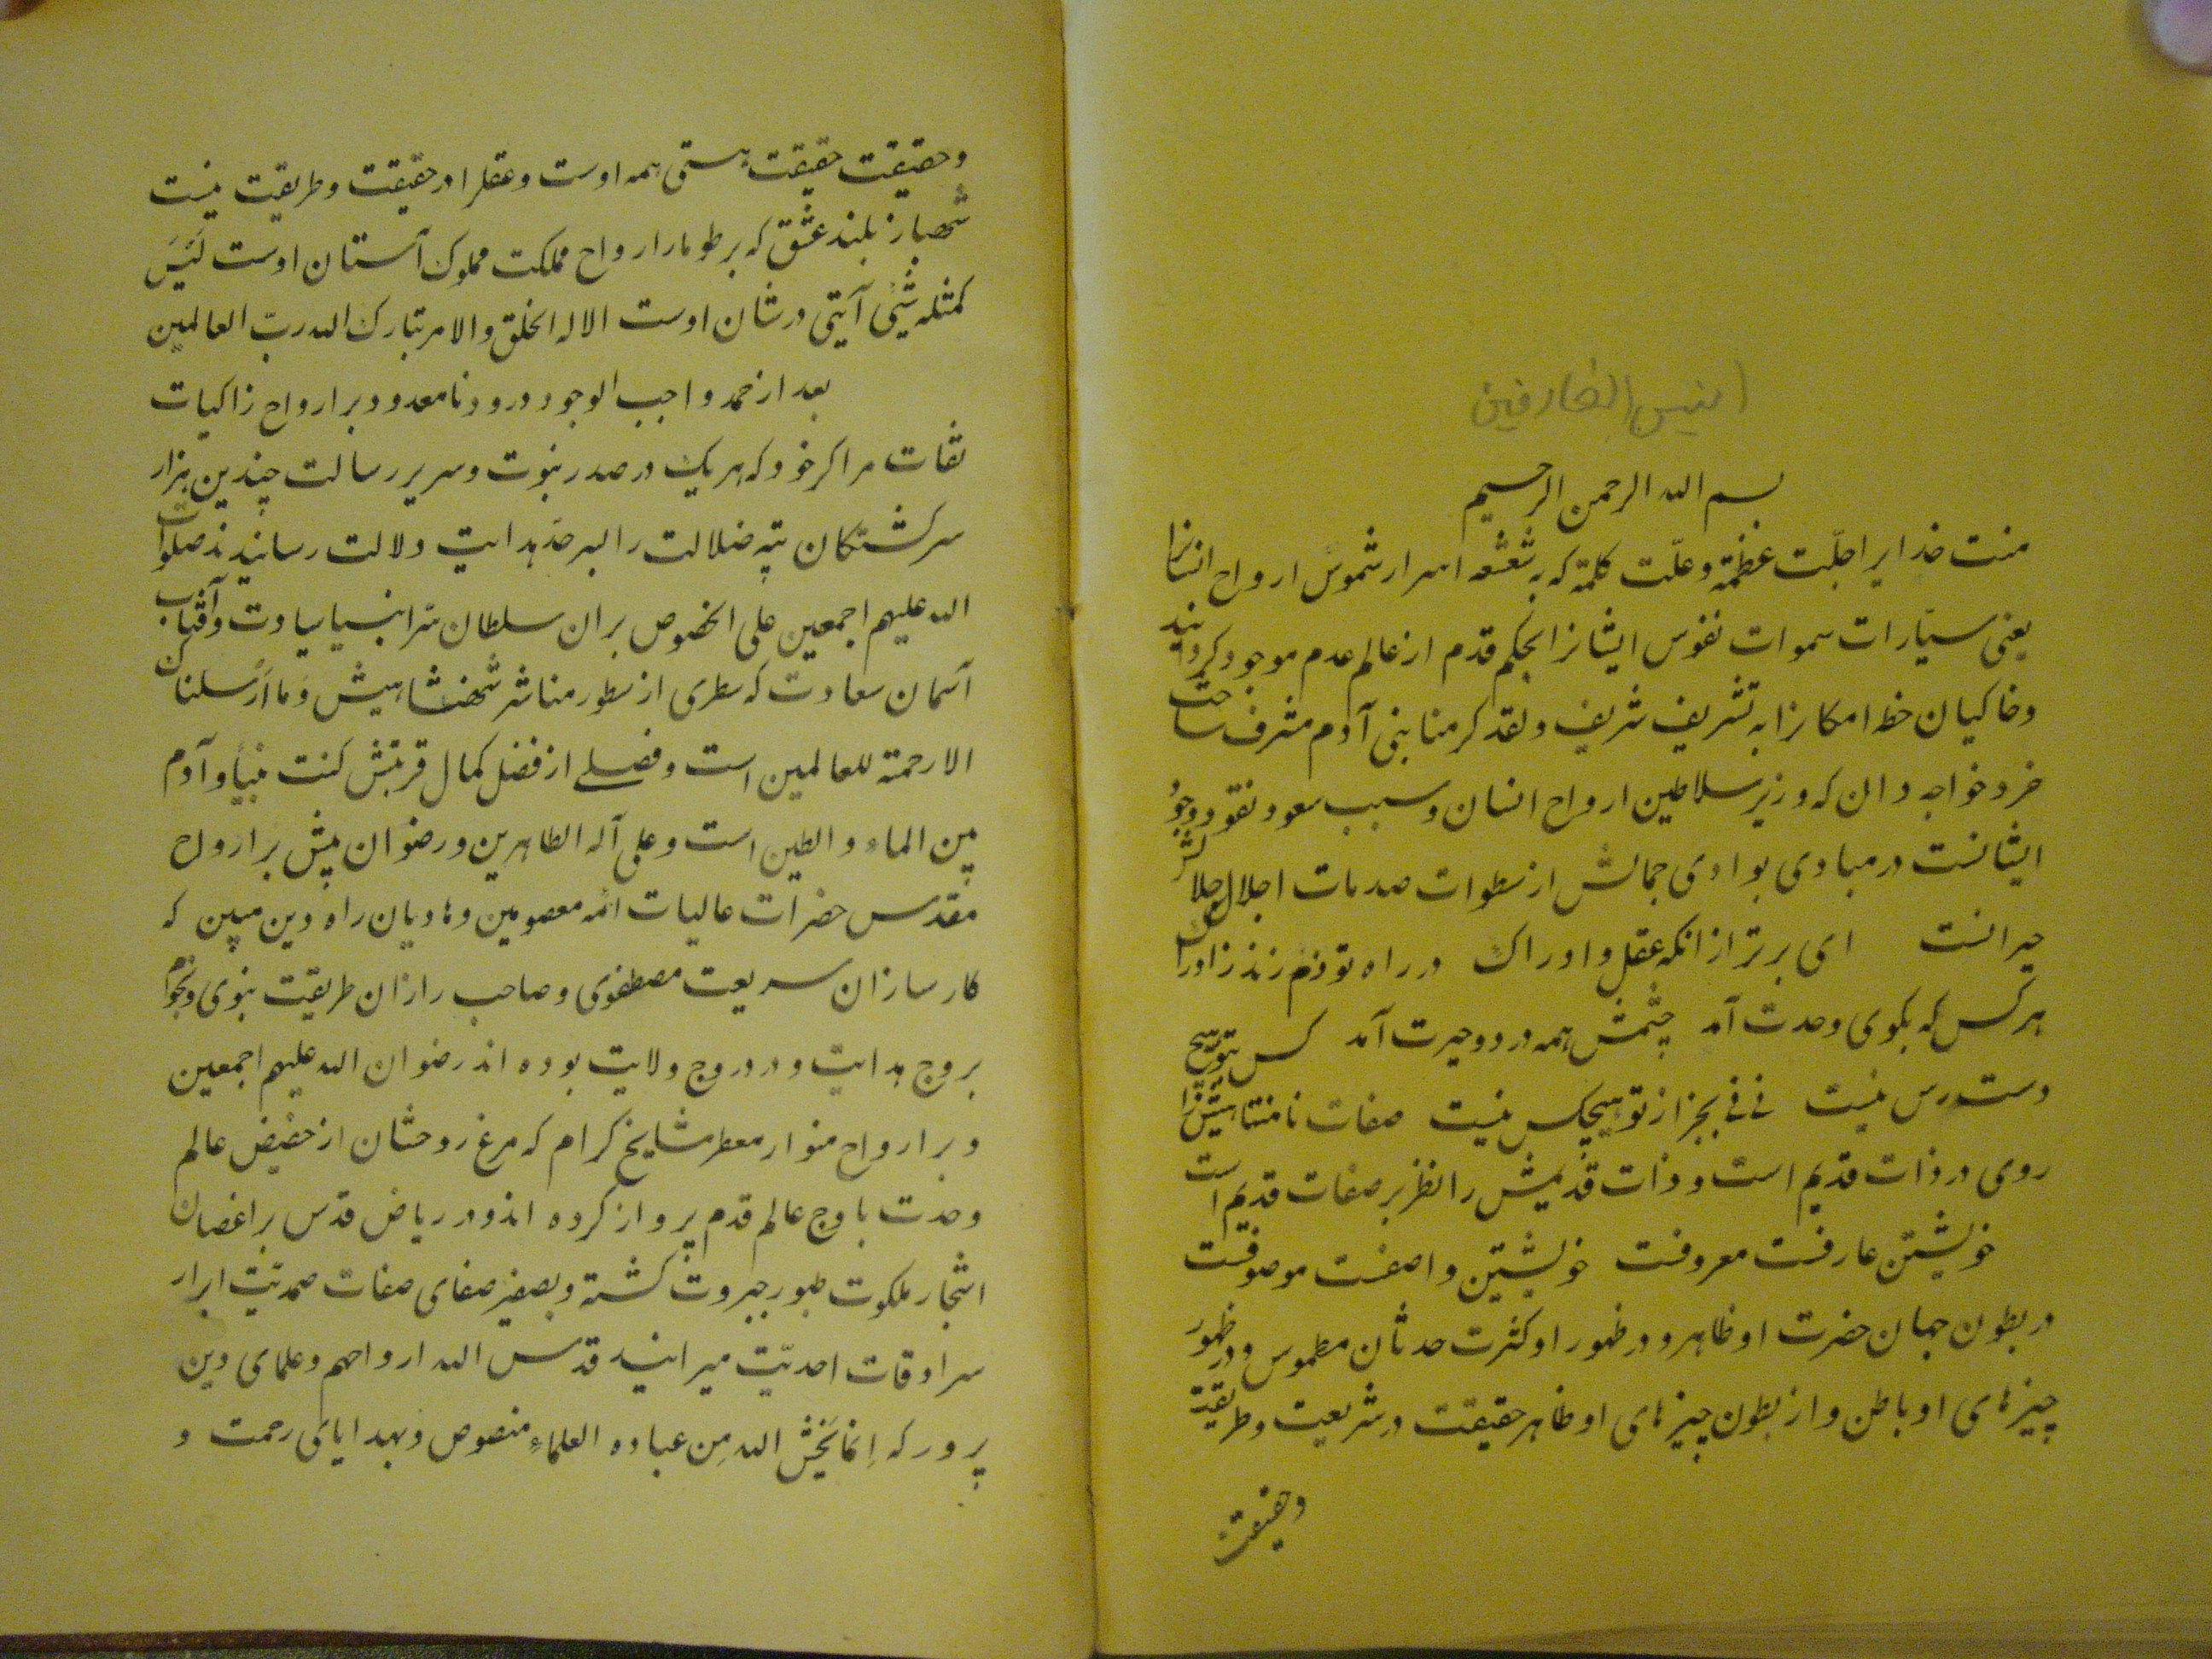 انیس العارفین
بسم الله الرحمن الرحیم
منت خدایرا جلّت عظمته و علّت کلمته که به شعشعه اسرار شموس ارواح انسانرا
یعنی سیّارات سموات نفوس ایشانرا بحکم قدم از عالم عدم موجود کردانید
و خاکیان خطه امکانرا به تشریف شریف و لقد کرمنا بنی آدم مشرف ساخت
خرد خواجه دان که وزیر سلاطین ارواح انسان و سبب سعود نقود وجود
ایشانست در مبادی بوادی جمالش از سطوات صدمات اجلال جلالش
حیرانست ای برتر از انکه عقل و ادراک در راه تو دم زند
هرکس که بکوی وحدت آمد چشمش همه درد و حیرت آمد کس بتو
دسترس نیست نی نی بجز از تو هیچکس نیست صفات نامتناهیش را
روی در ذات قدیم است و ذات قدیمش را نظر بر صفات قدیم است
خویشتن عارفست معروفست خویشتن واصفست موصوفست
در بطون جهان حضرت او ظاهر و در ظهور او کثرت حدثان مطموس و در ظهور
چیزهای او باطن و از بطون چیزهای او ظاهر حقیقت در شریعت و طریقت
وحقیقت
و حقیقت حقیقت هستی همه اوست و عقلرا در حقیقت و طریقت نیست
شهباز بلند عشق که بر طومار ارواح مملکت مملوک آستان اوست لَیسَ
کمثله شیئی آیتی در شان اوست الا له الخلق و الامر تبارک الله رب العالمین
بعد از حمد واجب الوجود درود نامعدود بر ارواح زاکیات
ثقات مراکز خود که هر یک در صدر نبوت و سریر رسالت چندین هزار
سرکشتکان تیه ضلالت را بسر حد هدایت دلالت رسانیدند صلوات
الله علیهم اجمعین علی الخصوص بران سلطان سرا نبیا سیادت و آفتاب
آسمان سعادت که سطری از سطور مناشر شهنشاهیش وَ ما اَرسلناک
الا رحمته للعالمین است و فصلے از فضل کمال قربتش کنت نبیاً و آدم
بین الماء و الطین است و علی آله الطاهرین و رضوان بیش بر ارواح
مقدس حضرات عالیات ائمه معصومین و هادیان راه دین مبین که
کارسازان سریعت مصطفوی و صاحب رازان طریقت نبوی و نجوم
بروج هدایت و در دروج ولایت بوده اند رضوان الله علیهم اجمعین
و بر ارواح منوار معطر مشایخ کرام که مرغ روحشان از حضیض عالم
وحدت باوج عالم قدم پرواز کرده اند و در ریاض قدس بر اغصان
اشجار ملکوت طیور جبروت کشته و بصفیر صفای صفات صمدیّت ابرار
سرادقات احدیّت میرانند قدس الله ارواحهم و علمای دین
پرور که اِنمّا یَخشَ الله مِن عباده العلماءِ منصوص و بهدایای رحمت و